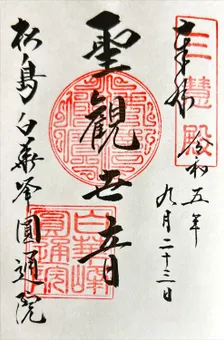 奉拝
令和五年
九月二十三日
三慧殿
聖観世音
白華峰
圓通院
松島 白華峯 圓通院